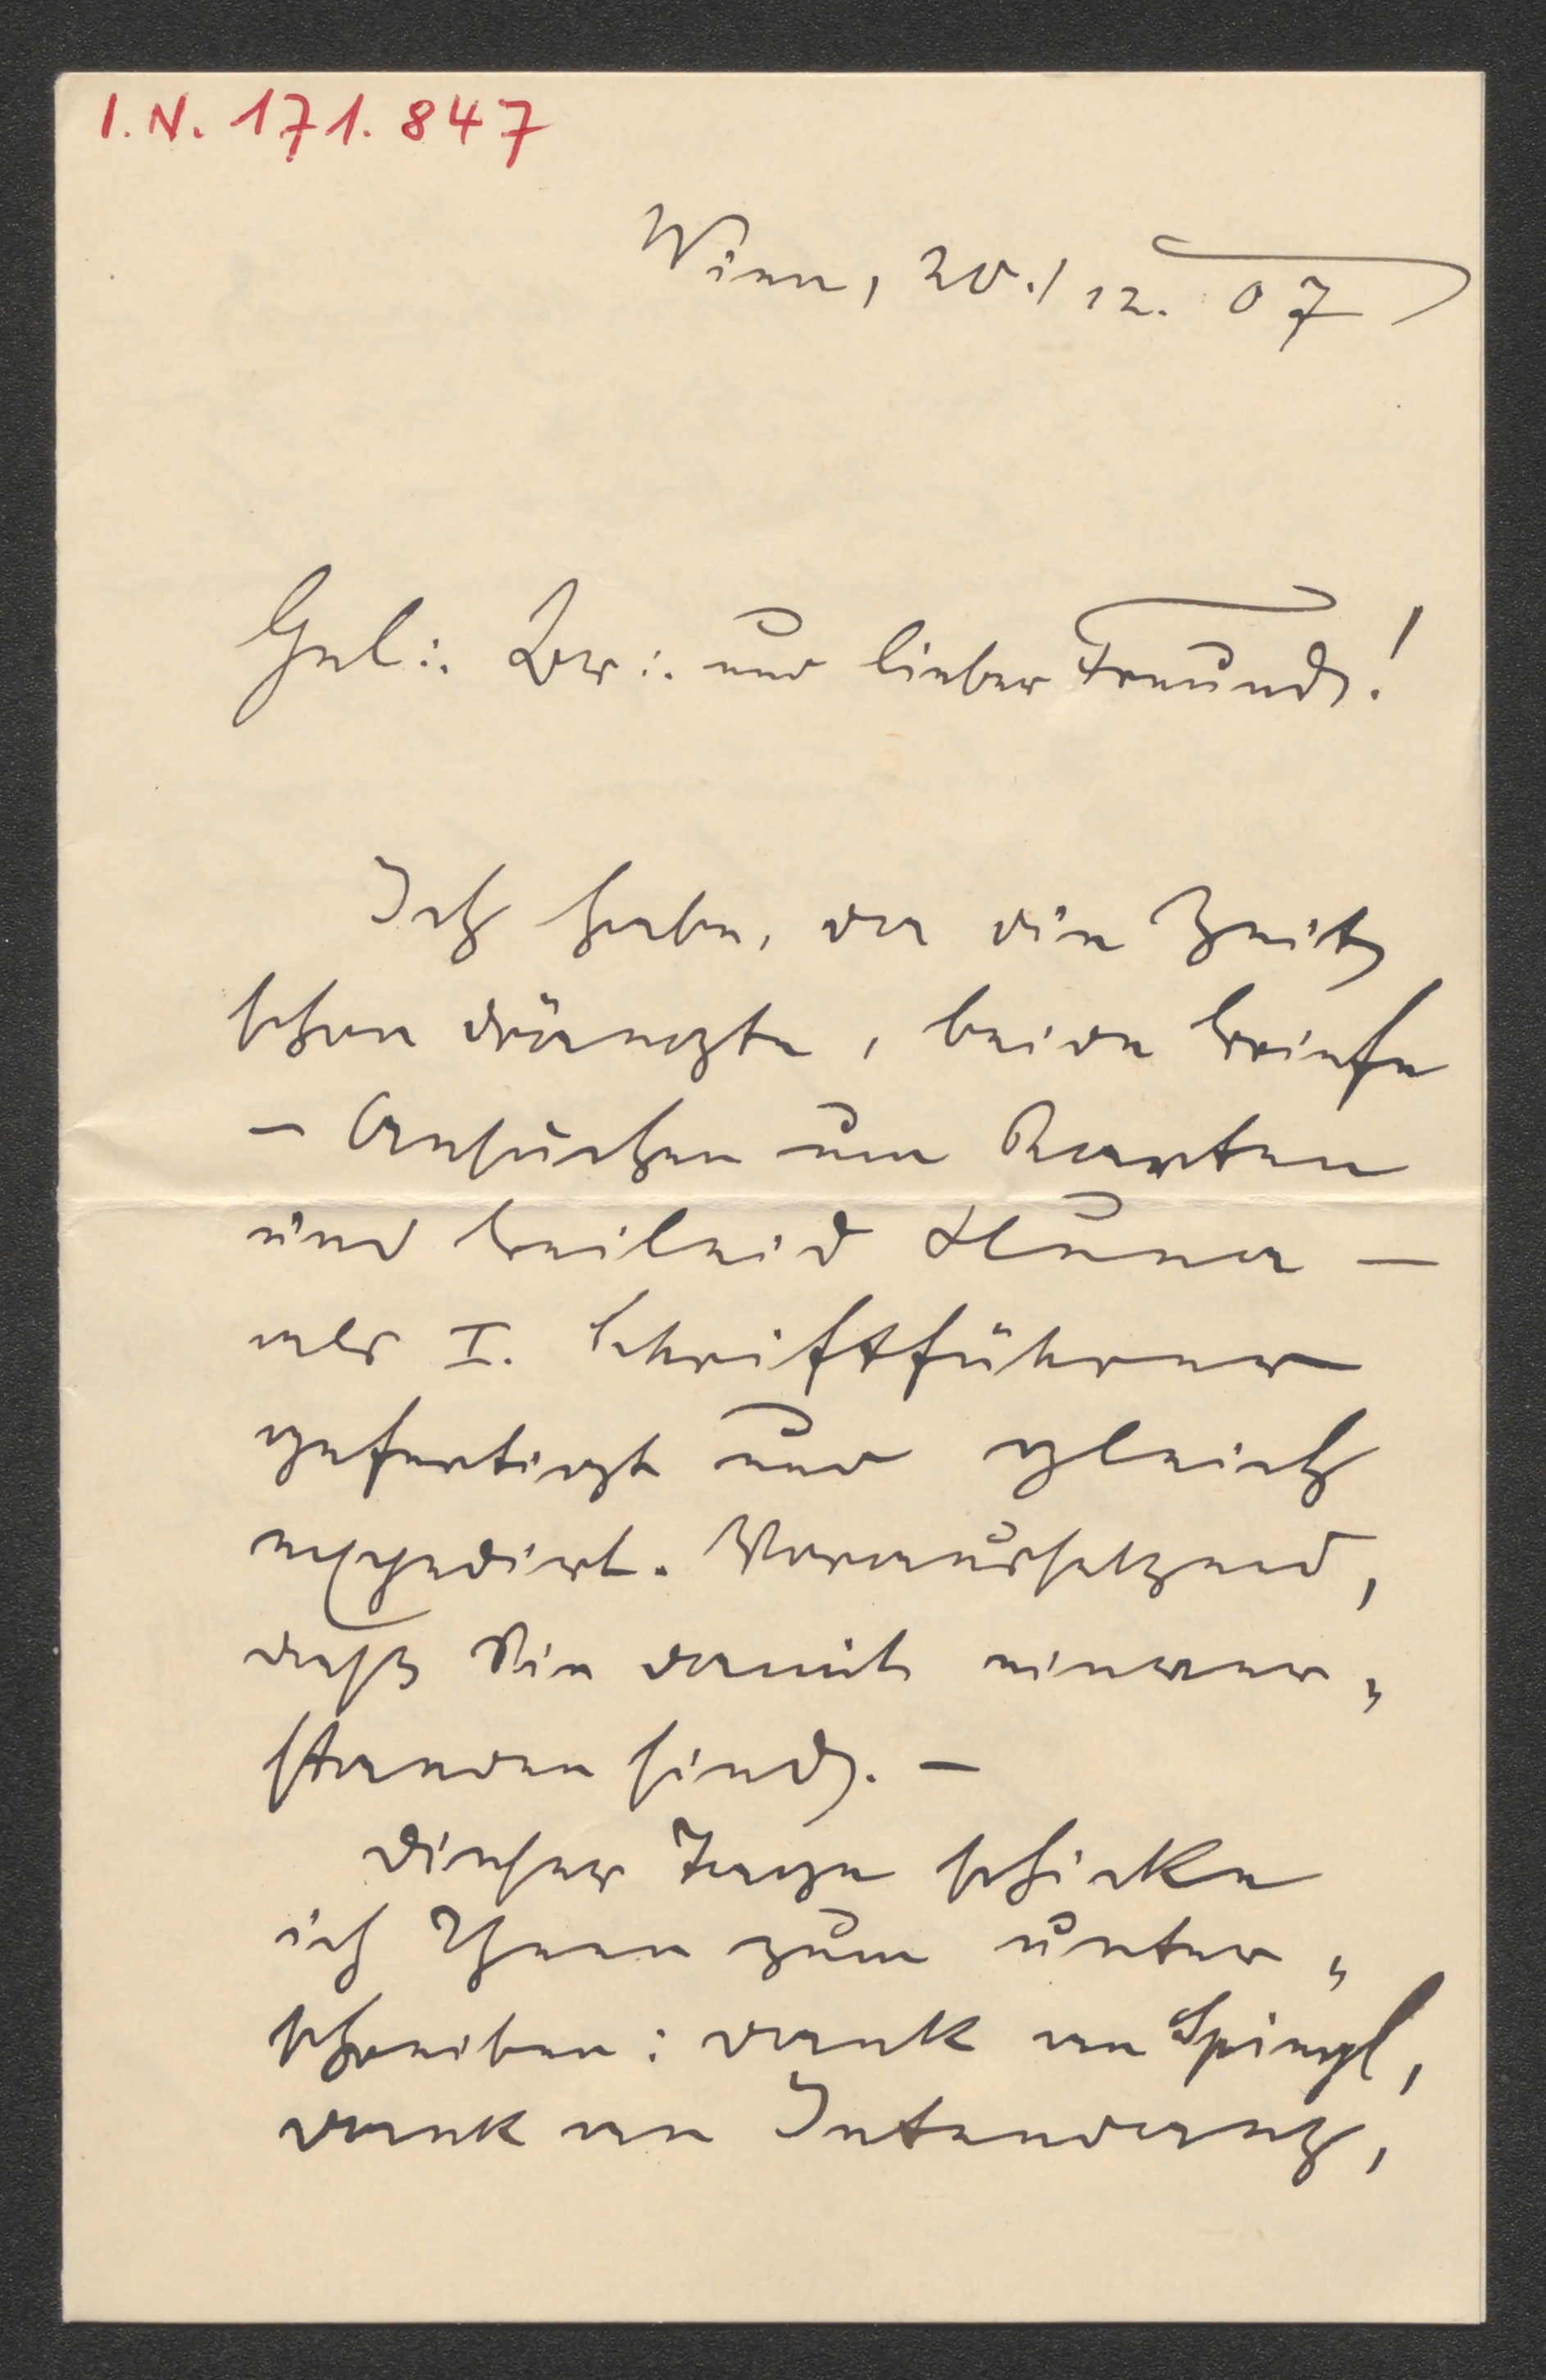 I.N. 171.847
Wien, 20./12. 07
Gel:. Br:. und lieber Freund!
Ich habe, da die Zeit
schon drängte, beide Briefe
– Ansuchen um Karten
und Beileid –
als I. Schriftführer
gefertigt und gleich
expedirt. Voraussetzend,
daß Sie damit einver„
standen sind. –
Dieser Tage schicke
ich Ihnen zum unter„
schreiben: Dank an Spiegl,
Dank an Intendanz,